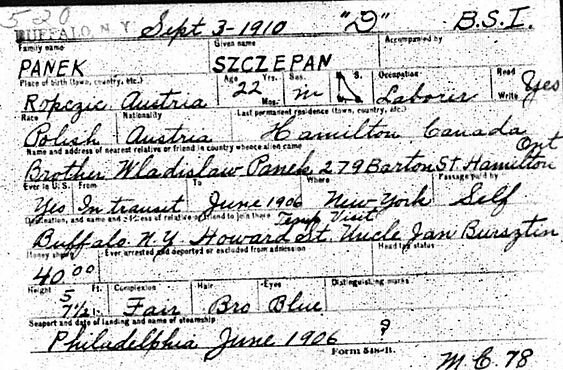 520
BUFFALO N.Y. Sept 3-1910 "D" B.S.I.
Family name Given name Accompanied by
PANEK SZCZEPAN
Place of birth (town, country, etc.) Age Yrs. Mos. Sex. M. S. Occupation Read
Ropczic Austria 22 m Laborer Write Yes
Race Nationality Last permanent residence (town, country, etc.)
Polish Austria Hamilton Canada
Name and address of nearest relative or friend in country whence alien came Ont
Brother Wladislaw Panek 279 Barton St. Hamilton
Ever in U.S. From To Where Passage paid by
Yes In transit June 1906 New York Self
Destination, and name and address of relative or friend to join there Temp Visit
Buffalo. N.Y. Howard St. Uncle Jan Bursztin
Money shown Ever arrested and deported or excluded from admission Head tax status
40.00
Height Ft. Complexion Hair Eyes Distinguishing marks
5 7 1/2 Fair Bro Blue
Seaport and date of landing and name of steamship
Philadelphia June 1906 ?
Form 548-B.
M.C. 78